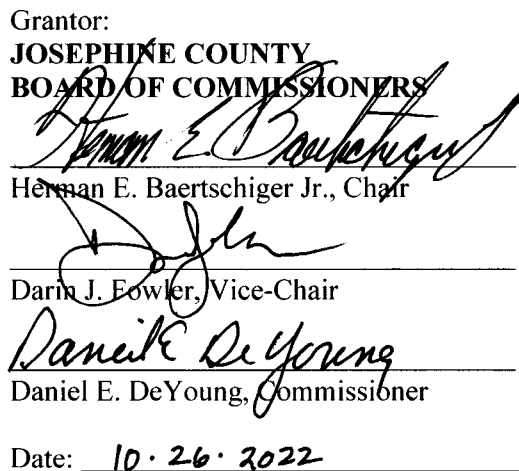 Grantor:
JOSEPHINE COUNTY
BOARD OF COMMISSIONERS
Herman E. Baertschiger
Herman E. Baertschiger Jr., Chair
Darin J. Fowler, Vice-Chair
Daniel E DeYoung
Daniel E. DeYoung, Commissioner
Date: 10·26·2022